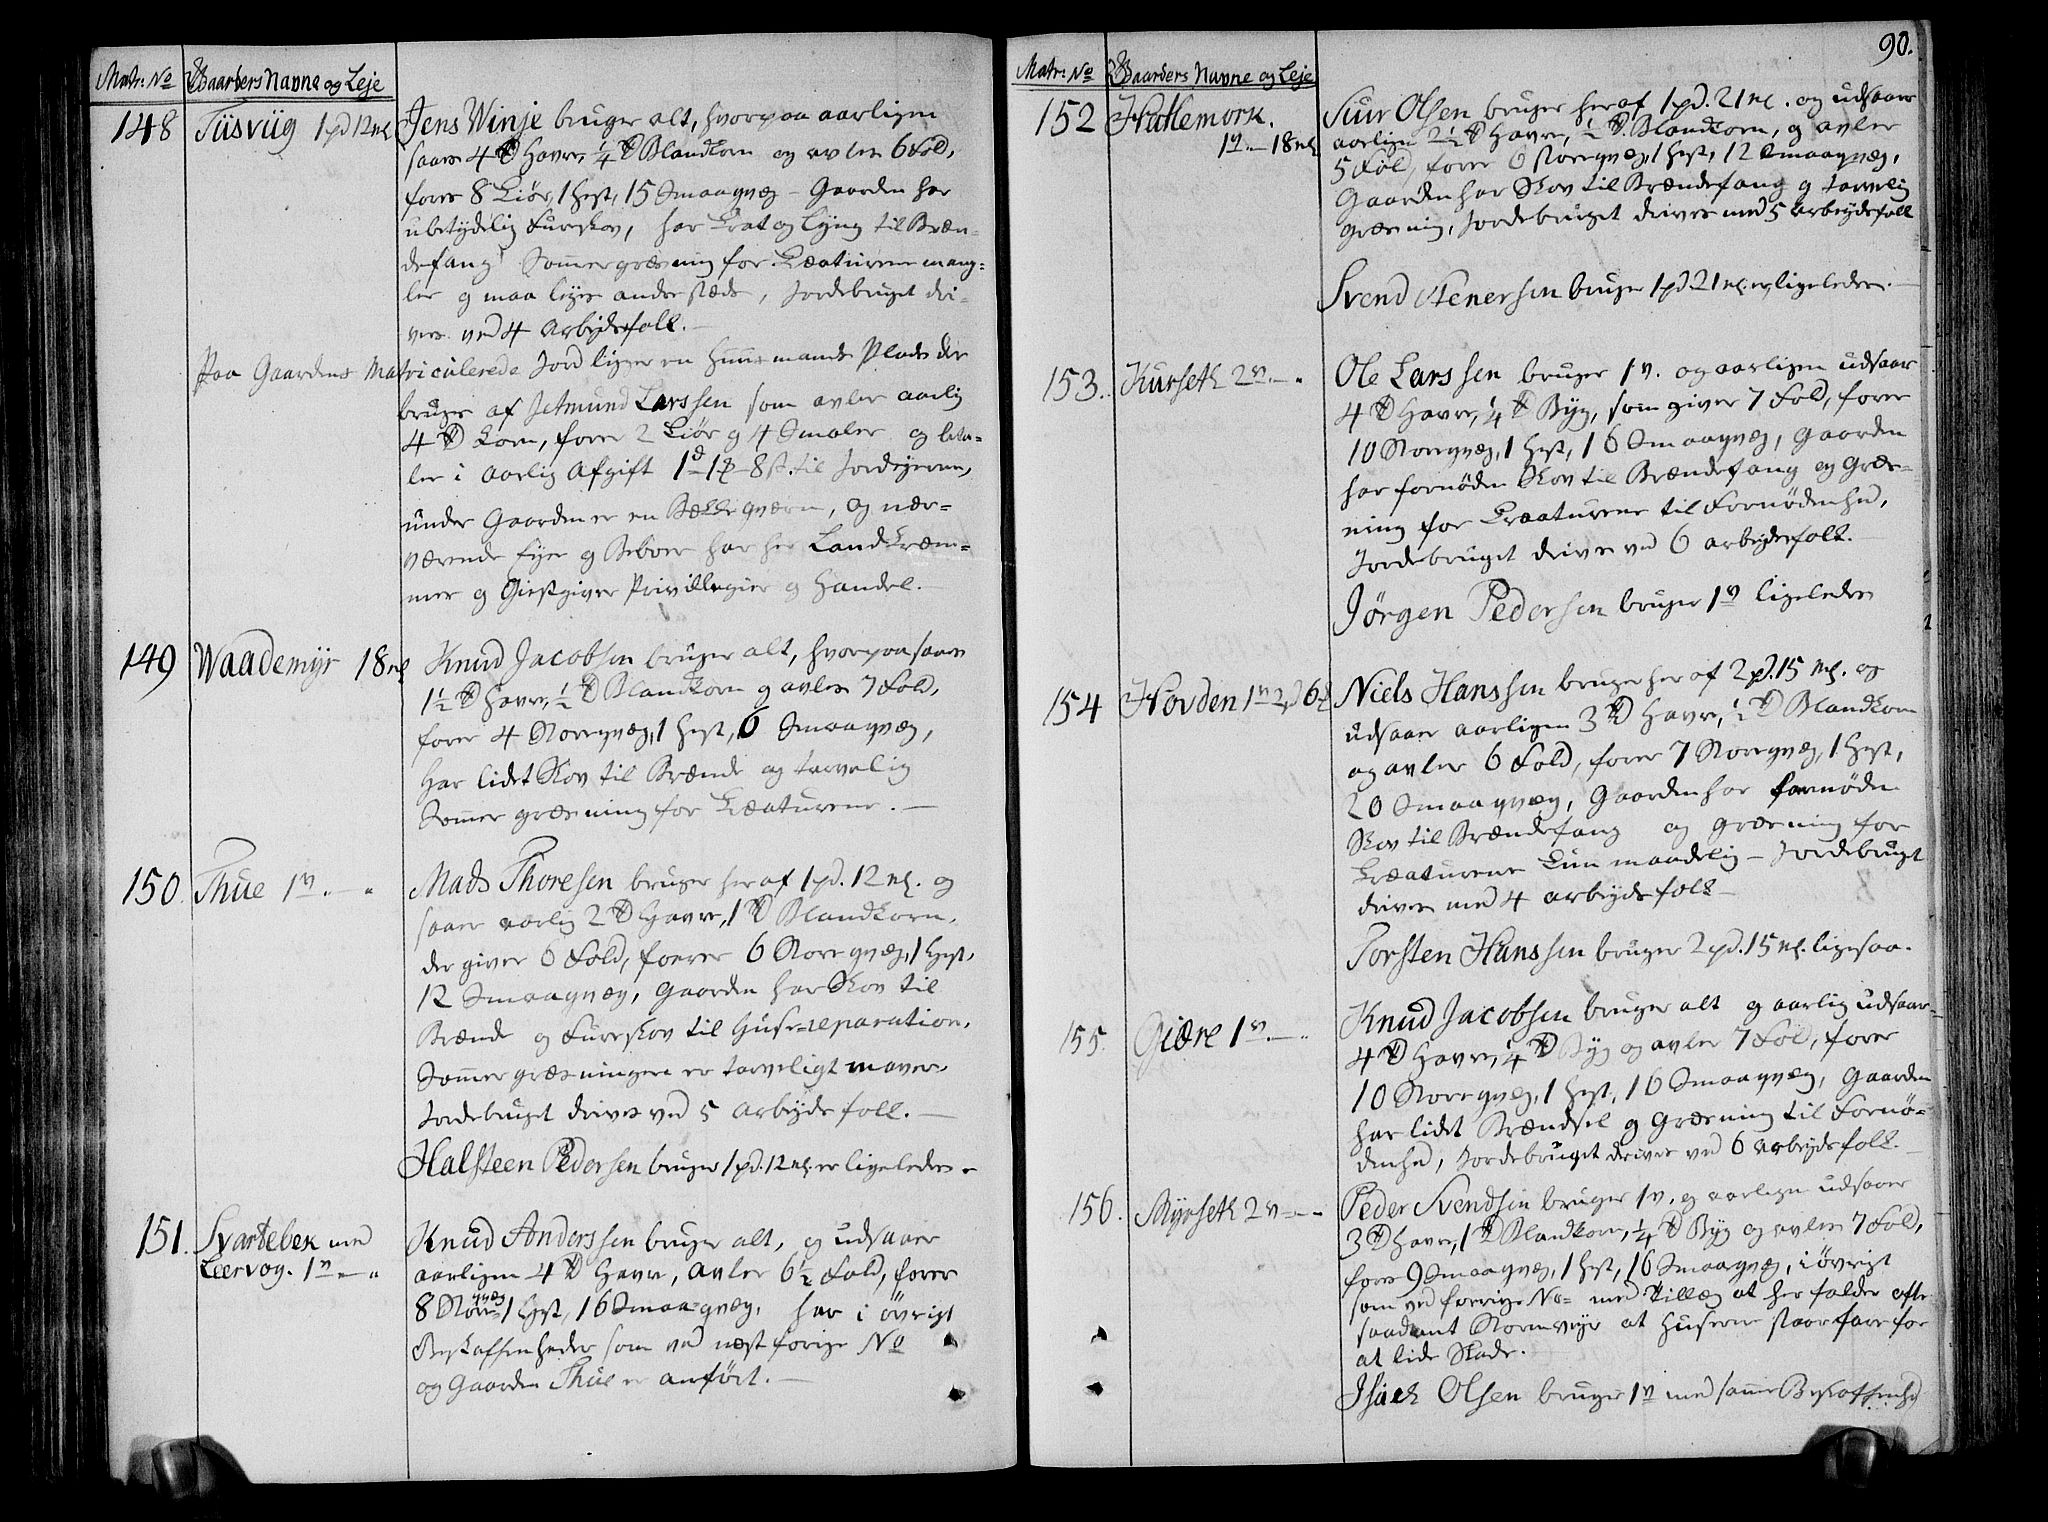 Matr: No Gaardens Navne og Leje
148 Tiisviig 1 pd 12 ml
Jens Winje bruger alt, hvorpaa aarligen
saaes 4 Tdr Havre, ¼ Td Blandkorn og avles 6 Fold,
fores 8 Kiør, 1 Hest, 15 Smaaqvæg – Gaarden har
ubetydelig Fureskov, har Krat og Lyng til Bræn-
defang Sommergræsning for Kreaturene mang-
ler og maa lejes andre stæds, Jordebruget dri-
ves ved 4 Arbejdsfolk. –
Paa Gaardens Matriculerede Jord ligger en Huusmands Plads der
bruges af Jetmund Larssen som avler aarlig
4 Td Korn, forer 2 Kiør og 4 Smaler og beta-
ler i aarlig Afgift 1 d 1 – 8 s. til Jordejeren,
under Gaarden er en Bækkeqværn, og nær-
værende Ejer og Beboer har her Landkræm-
mer og Giestgiver Privillegier og Handel. –
149 Waademyr 18 ml
Knud Jacobsen bruger alt, hvorpaa saaes
1½ Td Havre, ½ Td Blandkorn og avles 7 Fold,
forer 4 Storeqvæg, 1 Hest, 6 Smaaqvæg,
Har lidet Skov til Brænde og tarvelig
Sommer græsning for Kreaturene. –
150 Thue 1 v. – "
Mads Thoresen bruger her af 1 pd. 12 ml. og
saaer aarlig 2 Td Havre, 1 Td Blandkorn,
der giver 6 Fold, foerer 6 Store qvæg, 1 Hest,
12 Smaaqvæg, Gaarden har Skov til
Brænde og Fureskov til Huse-reparation,
Sommer græsningen er tarveligt maver,
Jordebruget drives ved 5 Arbejdsfolk. –
Halsteen Pedersen bruger 1 pd. 12 ml er ligeledes –
151. Svartebek med
Leervog. 1 v – "
Knud Anderssen bruger alt, og udsaaer
aarligen 4 Td Havre, avler 6½ Fold, forer
8 Store qvæg 1 Hest, 16 Smaa-qvæg, har i øvrigt
Beskaffenheder som ved næst forige No
og Gaarden Thue er anført. –
90.
Matr: No Gaardens Navne og Leje
152 Hattemork.
1 v. – 18 ml
Siur Olsen bruger her af 1 pd. 21 ml. og udsaaer
aarligen 2½ Td Havre, ½ Td Blandkorn, og avler
5 Fold, forer 6 storeqvæg, 1 Hest, 12 Smaaqvæg,
Gaarden har Skov til Brændefang og tarvelig
græsning, Jordebruget drives med 5 Arbejdsfolk
Svend Stenersen bruger 1 pd 21 ml. er ligeledes. –
153. Kurseth 2 v. – "
Ole Larssen bruger 1 v. og aarligen udsaaer
4 Td Havre, ¼ Td Byg, som giver 7 Fold, forer
10 Storeqvæg, 1 Hest, 16 Smaaqvæg, Gaarden
har fornøden Skov til Brændefang og Græs-
ning for Kreaturene til Fornødenhed,
Jordebruget drives ved 6 arbejdsfolk. –
Jørgen Pedersen bruger 1 v ligeledes
154 Hovden 1 v 2 pd 6
Niels Hanssen bruger her af 2 pd. 15 ml. og
udsaaer aarligen 3 Td Havre, ½ Td Blandkorn
og avler 6 Fold, forer 7 Storeqvæg, 1 Hest,
20 Smaaqvæg, Gaarden har fornøden
Skov til Brændefang og græsning for
Kreaturene kun maadelig – Jordebruget
drives med 4 arbejdsfolk –
Torsten Hanssen bruger 2 pd. 15 ml. ligesaa.
155. Giære 1 v. – "
Knud Jacobsen bruger alt og aarlig udsaaer
4 Td Havre, ¼ Td Byg og avler 7 Fold, forer
10 Storeqvæg, 1 Hest, 16 Smaaqvæg, Gaarden
har lidet Brændsel og Græsning til Fornø-
denhed, Jordebruget drives ved 6 Arbejdsfolk. –
156. Myrseth 2 v – "
Peder Svendsen bruger 1 v. og aarligen udsaaer
3 Td Havre, 1 Td Blandkorn, ¼ Td Byg og avler 7 Fold,
forer 9 Smaaqvæg, 1 Hest, 16 Smaaqvæg, i øvrigt
som ved forrige No – med Tillæg at her falder ofte
saadant Stormvejr at Husene staar fare for
at lide Skade.
Isach Olsen bruger 1 v med samme Beskaffenhed